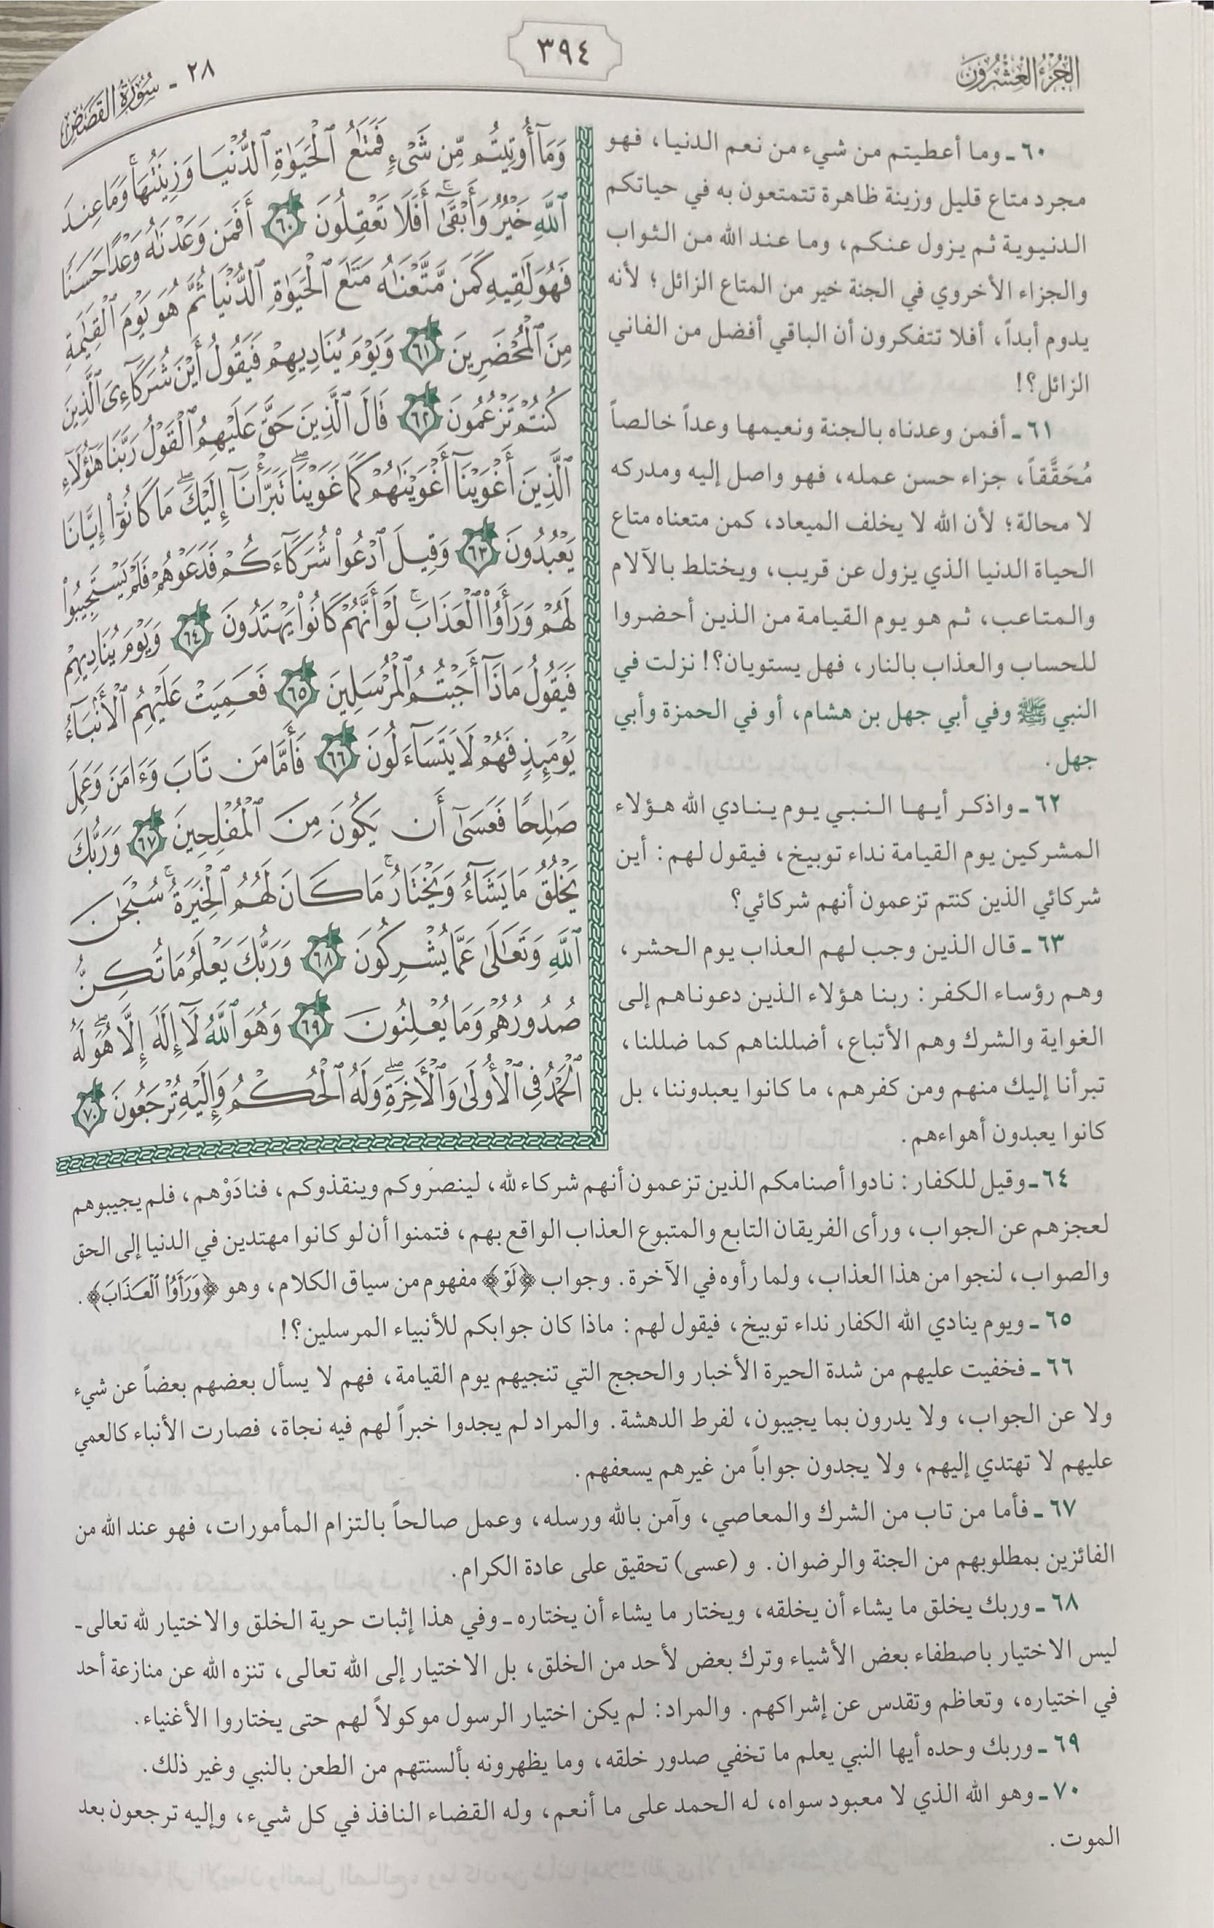 الجزء العشرون
٣٩٤
٢٨ - سورة القصص
وَمَآ أُوتِيتُم مِّن شَىْءٍ فَمَتَٰعُ ٱلْحَيَوٰةِ ٱلدُّنْيَا وَزِينَتُهَا ۚ وَمَا عِندَ
ٱللَّهِ خَيْرٌ وَأَبْقَىٰٓ ۚ أَفَلَا تَعْقِلُونَ ٦٠ أَفَمَن وَعَدْنَٰهُ وَعْدًا حَسَنًا
فَهُوَ لَٰقِيهِ كَمَن مَّتَّعْنَٰهُ مَتَٰعَ ٱلْحَيَوٰةِ ٱلدُّنْيَا ثُمَّ هُوَ يَوْمَ ٱلْقِيَٰمَةِ
مِنَ ٱلْمُحْضَرِينَ ٦١ وَيَوْمَ يُنَادِيهِمْ فَيَقُولُ أَيْنَ شُرَكَآءِىَ ٱلَّذِينَ
كُنتُمْ تَزْعُمُونَ ٦٢ قَالَ ٱلَّذِينَ حَقَّ عَلَيْهِمُ ٱلْقَوْلُ رَبَّنَا هَٰٓؤُلَآءِ
ٱلَّذِينَ أَغْوَيْنَآ أَغْوَيْنَٰهُمْ كَمَا غَوَيْنَا ۖ تَبَرَّأْنَآ إِلَيْكَ ۖ مَا كَانُوٓا۟ إِيَّانَا
يَعْبُدُونَ ٦٣ وَقِيلَ ٱدْعُوا۟ شُرَكَآءَكُمْ فَدَعَوْهُمْ فَلَمْ يَسْتَجِيبُوا۟
لَهُمْ وَرَأَوُا۟ ٱلْعَذَابَ ۚ لَوْ أَنَّهُمْ كَانُوا۟ يَهْتَدُونَ ٦٤ وَيَوْمَ يُنَادِيهِمْ
فَيَقُولُ مَاذَآ أَجَبْتُمُ ٱلْمُرْسَلِينَ ٦٥ فَعَمِيَتْ عَلَيْهِمُ ٱلْأَنۢبَآءُ
يَوْمَئِذٍ فَهُمْ لَا يَتَسَآءَلُونَ ٦٦ فَأَمَّا مَن تَابَ وَءَامَنَ وَعَمِلَ
صَٰلِحًا فَعَسَىٰٓ أَن يَكُونَ مِنَ ٱلْمُفْلِحِينَ ٦٧ وَرَبُّكَ
يَخْلُقُ مَا يَشَآءُ وَيَخْتَارُ ۗ مَا كَانَ لَهُمُ ٱلْخِيَرَةُ ۚ سُبْحَٰنَ
ٱللَّهِ وَتَعَٰلَىٰ عَمَّا يُشْرِكُونَ ٦٨ وَرَبُّكَ يَعْلَمُ مَا تُكِنُّ
صُدُورُهُمْ وَمَا يُعْلِنُونَ ٦٩ وَهُوَ ٱللَّهُ لَآ إِلَٰهَ إِلَّا هُوَ ۖ لَهُ
ٱلْحَمْدُ فِى ٱلْأُولَىٰ وَٱلْأَخِرَةِ ۖ وَلَهُ ٱلْحُكْمُ وَإِلَيْهِ تُرْجَعُونَ ٧٠
٦٠ ـ وما أعطيتم من شيء من نعم الدنيا، فهو
مجرد متاع قليل وزينة ظاهرة تتمتعون به في حياتكم
الدنيوية ثم يزول عنكم، وما عند الله من الثواب
والجزاء الأخروي في الجنة خير من المتاع الزائل؛ لأنه
يدوم أبداً، أفلا تتفكرون أن الباقي أفضل من الفاني
الزائل؟!
٦١ ـ أفمن وعدناه بالجنة ونعيمها وعداً خالصاً
مُحَقَّقاً، جزاء حسن عمله، فهو واصل إليه ومدركه
لا محالة؛ لأن الله لا يخلف الميعاد، كمن متعناه متاع
الحياة الدنيا الذي يزول عن قريب، ويختلط بالآلام
والمتاعب، ثم هو يوم القيامة من الذين أحضروا
للحساب والعذاب بالنار، فهل يستويان؟! نزلت في
النبي ﷺ وفي أبي جهل بن هشام، أو في الحمزة وأبي
جهل.
٦٢ ـ واذكر أيها النبي يوم ينادي الله هؤلاء
المشركين يوم القيامة نداء توبيخ، فيقول لهم: أين
شركائي الذين كنتم تزعمون أنهم شركائي؟
٦٣ ـ قال الذين وجب لهم العذاب يوم الحشر،
وهم رؤساء الكفر: ربنا هؤلاء الذين دعوناهم إلى
الغواية والشرك وهم الأتباع، أضللناهم كما ضللنا،
تبرأنا إليك منهم ومن كفرهم، ما كانوا يعبدوننا، بل
كانوا يعبدون أهواءهم.
٦٤ ـ وقيل للكفار: نادوا أصنامكم الذين تزعمون أنهم شركاء لله، لينصروكم وينقذوكم، فنادَوْهم، فلم يجيبوهم
لعجزهم عن الجواب، ورأى الفريقان التابع والمتبوع العذاب الواقع بهم، فتمنوا أن لو كانوا مهتدين في الدنيا إلى الحق
والصواب، لنجوا من هذا العذاب، ولما رأوه في الآخرة. وجواب ﴿لَوْ﴾ مفهوم من سياق الكلام، وهو ﴿وَرَأَوُا۟ ٱلْعَذَابَ﴾.
٦٥ ـ ويوم ينادي الله الكفار نداء توبيخ، فيقول لهم: ماذا كان جوابكم للأنبياء المرسلين؟!
٦٦ ـ فخفيت عليهم من شدة الحيرة الأخبار والحجج التي تنجيهم يوم القيامة، فهم لا يسأل بعضهم بعضاً عن شيء
ولا عن الجواب، ولا يدرون بما يجيبون، لفرط الدهشة. والمراد لم يجدوا خبراً لهم فيه نجاة، فصارت الأنباء كالعمي
عليهم لا تهتدي إليهم، ولا يجدون جواباً من غيرهم يسعفهم.
٦٧ ـ فأما من تاب من الشرك والمعاصي، وآمن بالله ورسله، وعمل صالحاً بالتزام المأمورات، فهو عند الله من
الفائزين بمطلوبهم من الجنة والرضوان. و (عسى) تحقيق على عادة الكرام.
٦٨ ـ وربك يخلق ما يشاء أن يخلقه، ويختار ما يشاء أن يختاره ـ وفي هذا إثبات حرية الخلق والاختيار لله تعالى ـ
ليس الاختيار باصطفاء بعض الأشياء وترك بعض لأحد من الخلق، بل الاختيار إلى الله تعالى، تنزه الله عن منازعة أحد
في اختياره، وتعاظم وتقدس عن إشراكهم. والمراد: لم يكن اختيار الرسول موكولاً لهم حتى يختاروا الأغنياء.
٦٩ ـ وربك وحده أيها النبي يعلم ما تخفي صدور خلقه، وما يظهرونه بألسنتهم من الطعن بالنبي وغير ذلك.
٧٠ ـ وهو الله الذي لا معبود سواه، له الحمد على ما أنعم، وله القضاء النافذ في كل شيء، وإليه ترجعون بعد
الموت.